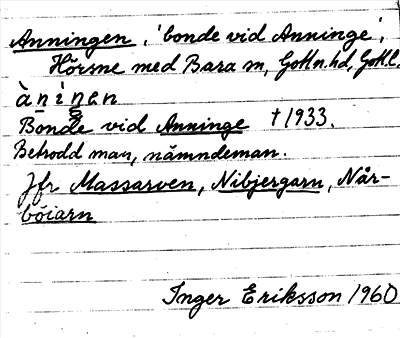 Anningen, 'bonde vid Anninge',
Hörsne med Bara sn, Gotl.n.hd, Gotl.l.
à n i n e n
Bonde vid Anninge †1933.
Betrodd man, nämndeman.
Jfr Massarven, Nibjergarn, Når-
böiarn
Inger Eriksson 1960